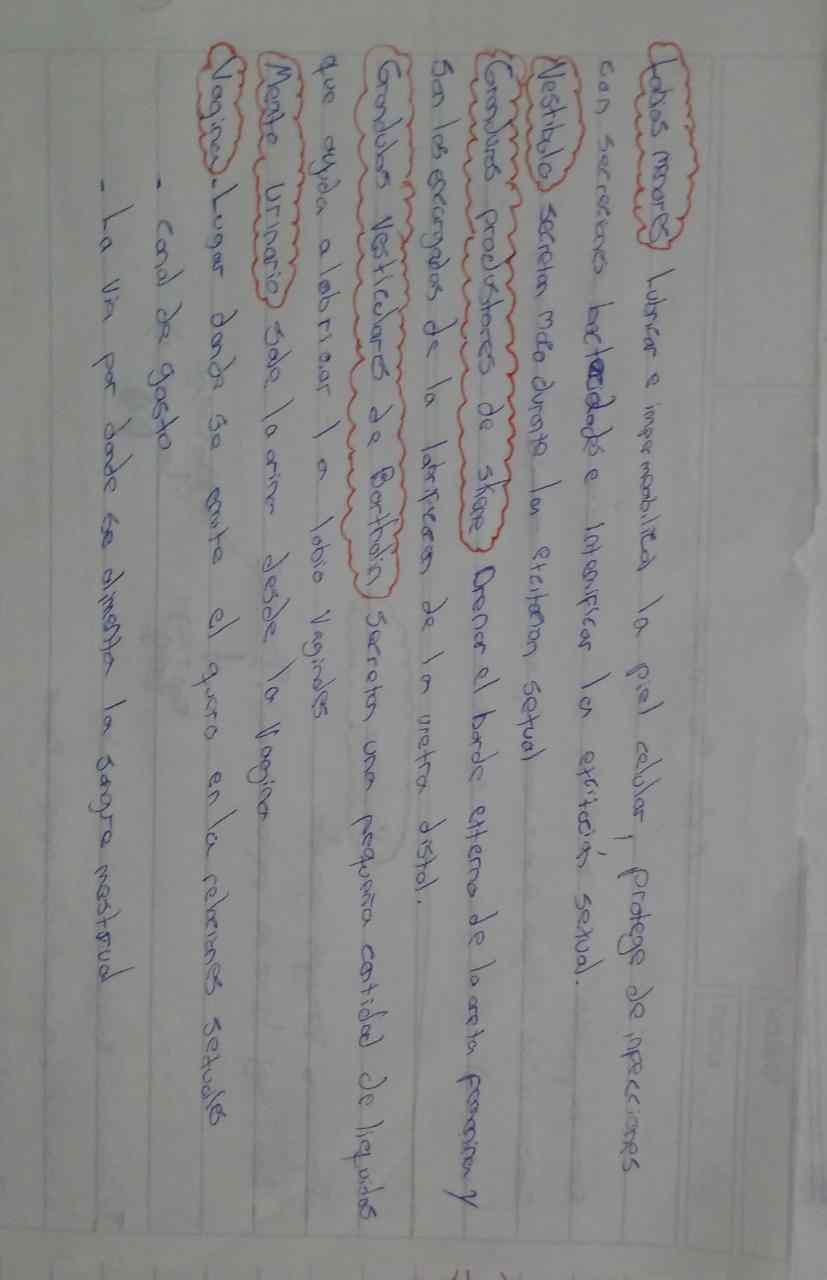 Labios menores Lubricar e impermeabiliza la piel celular, protege de infecciones
con secreciones bactecidades e intensificar la excitación sexual.
Vestibulo secretan moco durante la excitacion sexual
Glandulas de skene Drenar el borde externo de la uretra y
son los encargados de la lubrificacion de la uretra distal.
Glandulas Vesticulares de Bartholin Secretan una pequeña cantidad de liquidos
que ayuda a lubricar la labio Vaginales
Meato Urinario, sale la orina desde la Vagina
Vagina. Lugar donde se emite el en la relaciones sexuales
- Canal de
- La via por donde se alimenta la sangre mestrual